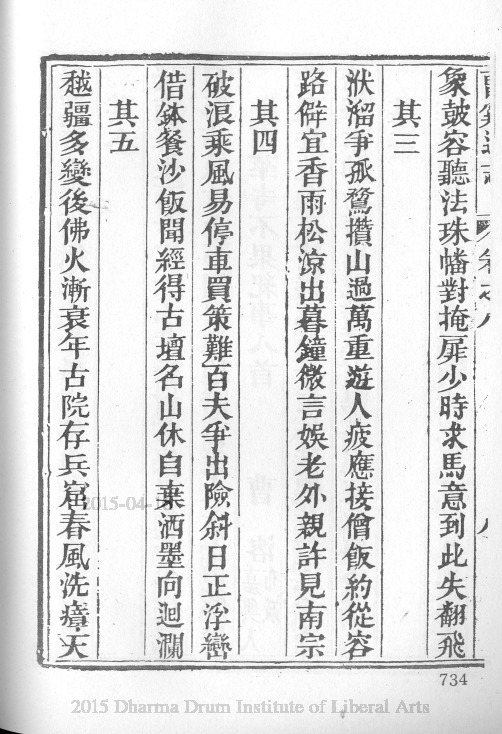 曹溪通志 卷之八 八
象鼓容聽法珠幡對掩扉少時求馬意到此失翻飛
其三
洑溜爭孤騖攢山過萬重遊人疲應接僧飯約從容
路僻宜香雨松凉出暮鐘微言娛老外親許見南宗
其四
破浪乘風易停車買策難百夫爭出險斜日正浮巒
借鉢餐沙飯聞經得古壇名山休自棄洒墨向迴瀾
其五
越疆多變後佛火漸衰年古院存兵窟春風洗瘴天
734
2015-04-
2015 Dharma Drum Institute of Liberal Arts